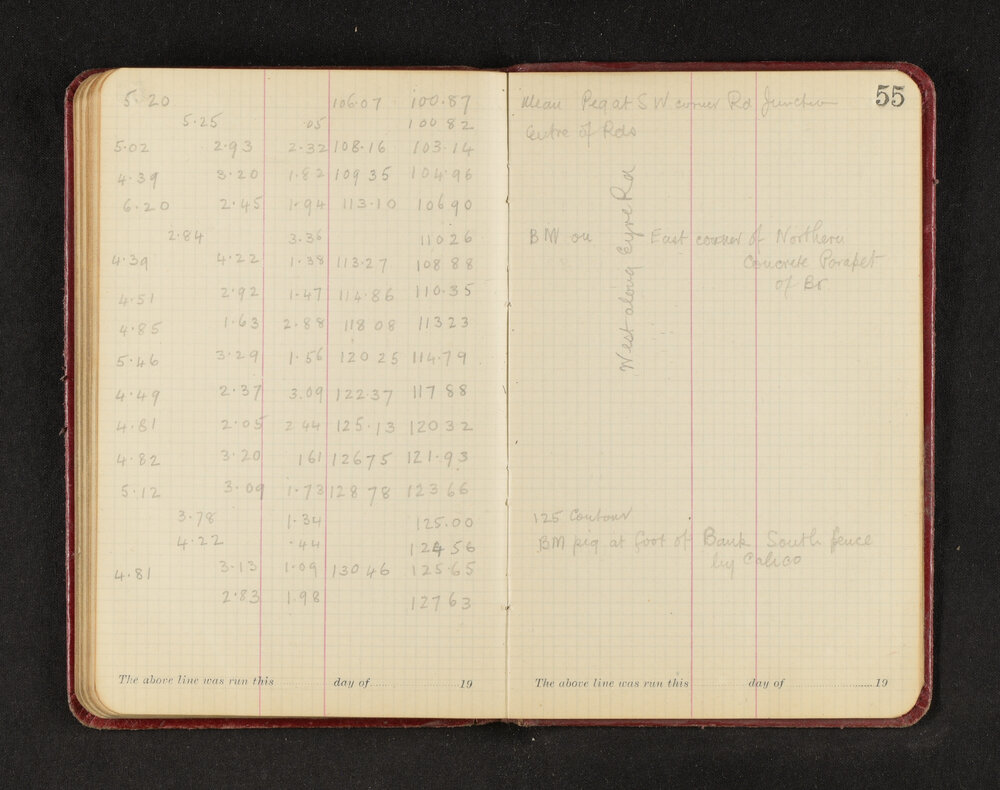 5.20 106.07 100.87
5.25 .05 100 82
5.02 2.93 2.32 108.16 103.14
4.39 3.20 1.82 109 35 104.96
6.20 2.45 1.94 113.10 106 90
2.84 3.36 110 26
4.39 4.22 1.38 113.27 108 88
4.51 2.92 1.47 114.86 110.35
4.85 1.63 2.88 118 08 113 23
5.46 3.29 1.56 120 25 114.79
4.49 2.37 3.09 122.37 117 88
4.81 2.05 2 44 125.13 120 32
4.82 3.20 1 61 126 75 121.93
5.12 3.09 1.73 128 78 123 66
3.78 1.34 125.00
4.22 .44 124 56
4.81 3.13 1.09 130 46 125.65
2.83 1.98 127 63
The above line was run this day of 19
55
Mean Peg at S W corner Rd Junction
Centre of Rds
West along Eyre Rd
BM on East corner of Northern
Concrete Parapet
of Br
125 Contour
BM peg at foot of Bank South fence
by Calico
The above line was run this day of 19